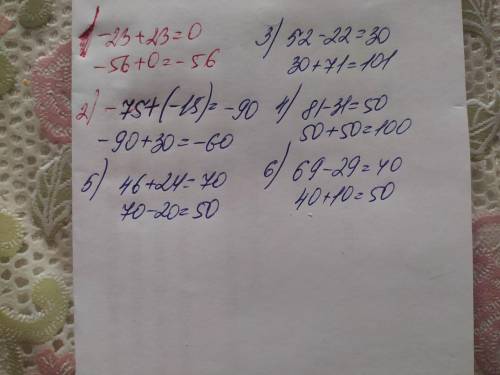 1) -23+23=0
-56+0=-56
2) -75+(-15)=-90
-90+30=-60
5) 46+24=70
70-20=50
3) 52-22=30
30+71=101
4) 81-31=50
50+50=100
6) 69-29=40
40+10=50